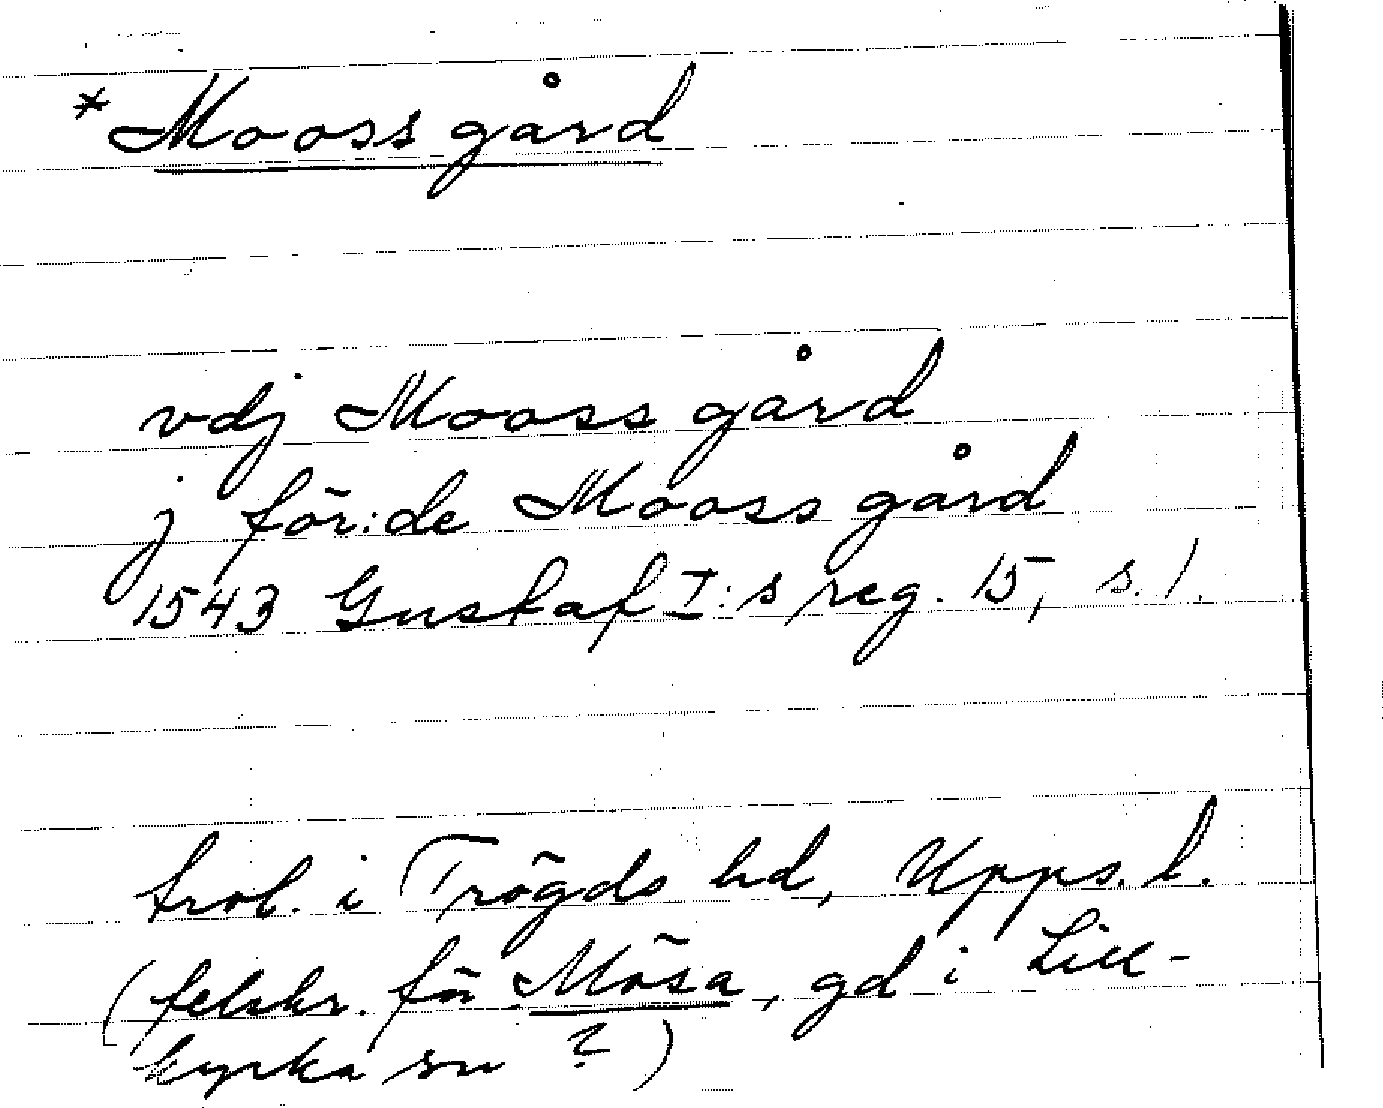 *Mooss gård
vdj Mooss gård
j för:de Mooss gård
1543 Gustaf I:s reg. 15, s. 1.
trol. i Trögds hd, Upps. l.
(felskr. för Mösa, gd i Lill-
kyrka sn ?)